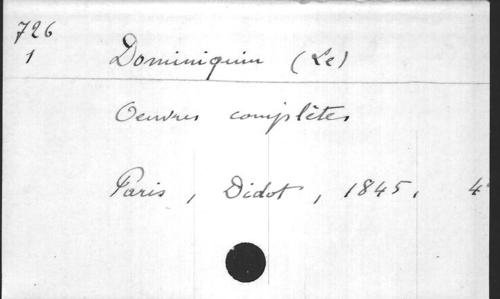 726
1
Dominiquin (Le)
Oeuvres complètes
Paris, Didot, 1845, 4°